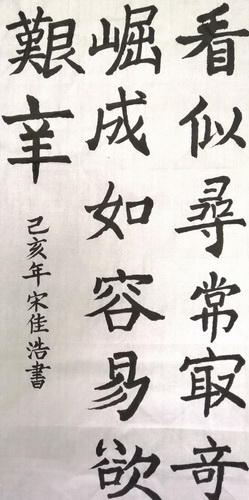 看似尋常㝡奇
崛成如容易欲
艱辛
己亥年宋佳浩書